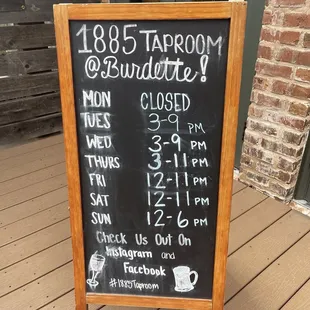 1885 TAPROOM
@Burdette!
MON CLOSED
TUES 3-9 PM
WED 3-9 PM
THURS 3-11 PM
FRI 12-11 PM
SAT 12-11 PM
SUN 12-6 PM
Check Us Out On
Instagram and
Facebook
#1885Taproom